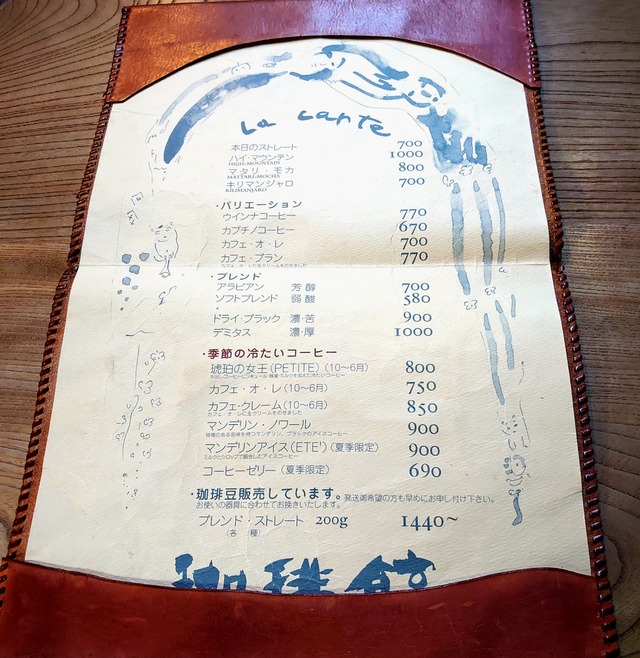 la carte
本日のストレート 700
ハイ・マウンテン 1000
HIGH-MOUNTAIN
マタリ・モカ 800
MATTARI-MOCHA
キリマンジャロ 700
KILIMANJARO
・バリエーション
ウインナコーヒー 770
カプチノコーヒー 670
カフェ・オ・レ 700
カフェ・ブラン 770
カフェ・オ・レに生クリームをのせました
・ブレンド
アラビアン 芳醇 700
ソフトブレンド 弱酸 580
ドライ・ブラック 濃・苦 900
デミタス 濃・厚 1000
・季節の冷たいコーヒー
琥珀の女王(PETITE)(10~6月) 800
カフェ・オ・レ(10~6月) 750
カフェ・クレーム(10~6月) 850
カフェ・オ・レに生クリームをのせました
マンデリン・ノワール 900
特徴のある苦味を持つマンデリン、ブラックのアイスコーヒー
マンデリンアイス(ETE')(夏季限定) 900
ミルクとシロップで調合したアイスコーヒー
コーヒーゼリー(夏季限定) 690
・珈琲豆販売しています。発送御希望の方も早めにお申し付け下さい。
お使いの器具に合わせてお挽きいたします。
ブレンド・ストレート 200g 1440~
(各種)
珈琲館